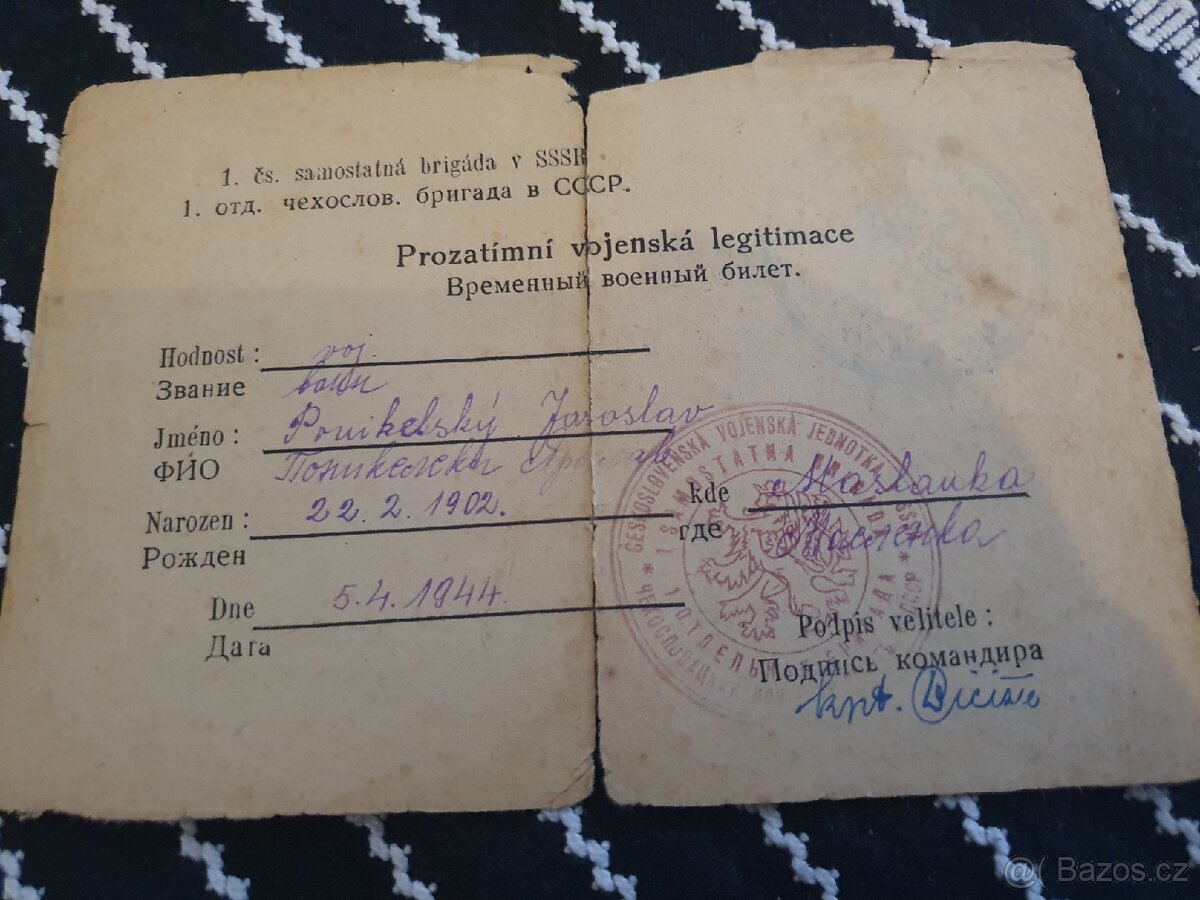 1. čs. samostatná brigáda v SSSR
1. отд. чехослов. бригада в СССР.
Prozatímní vojenská legitimace
Временный военный билет.
Hodnost: voj.
Звание воин
Jméno: Ponikelský Jaroslav
ФИО
Narozen: 22.2.1902. kde Maslauka
Рожден где
Dne 5.4.1944.
Дата
ČESKOSLOVENSKÁ VOJENSKÁ JEDNOTKA
1 SAMOSTATNÁ
Podpis velitele:
Подпись командира
kpt.
@ Bazos.cz